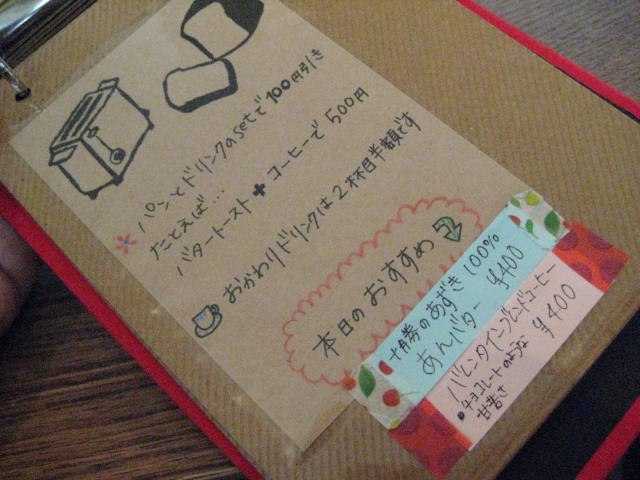 パンとドリンクのsetで100円引き
たとえば…
バタートースト+コーヒーで500円
おかわりドリンクは2杯目半額です
本日のおすすめ
十勝のあずき100%
あんバター ¥400
バレンタインブレンドコーヒー
¥400
•チョコレートのような
甘苦さ